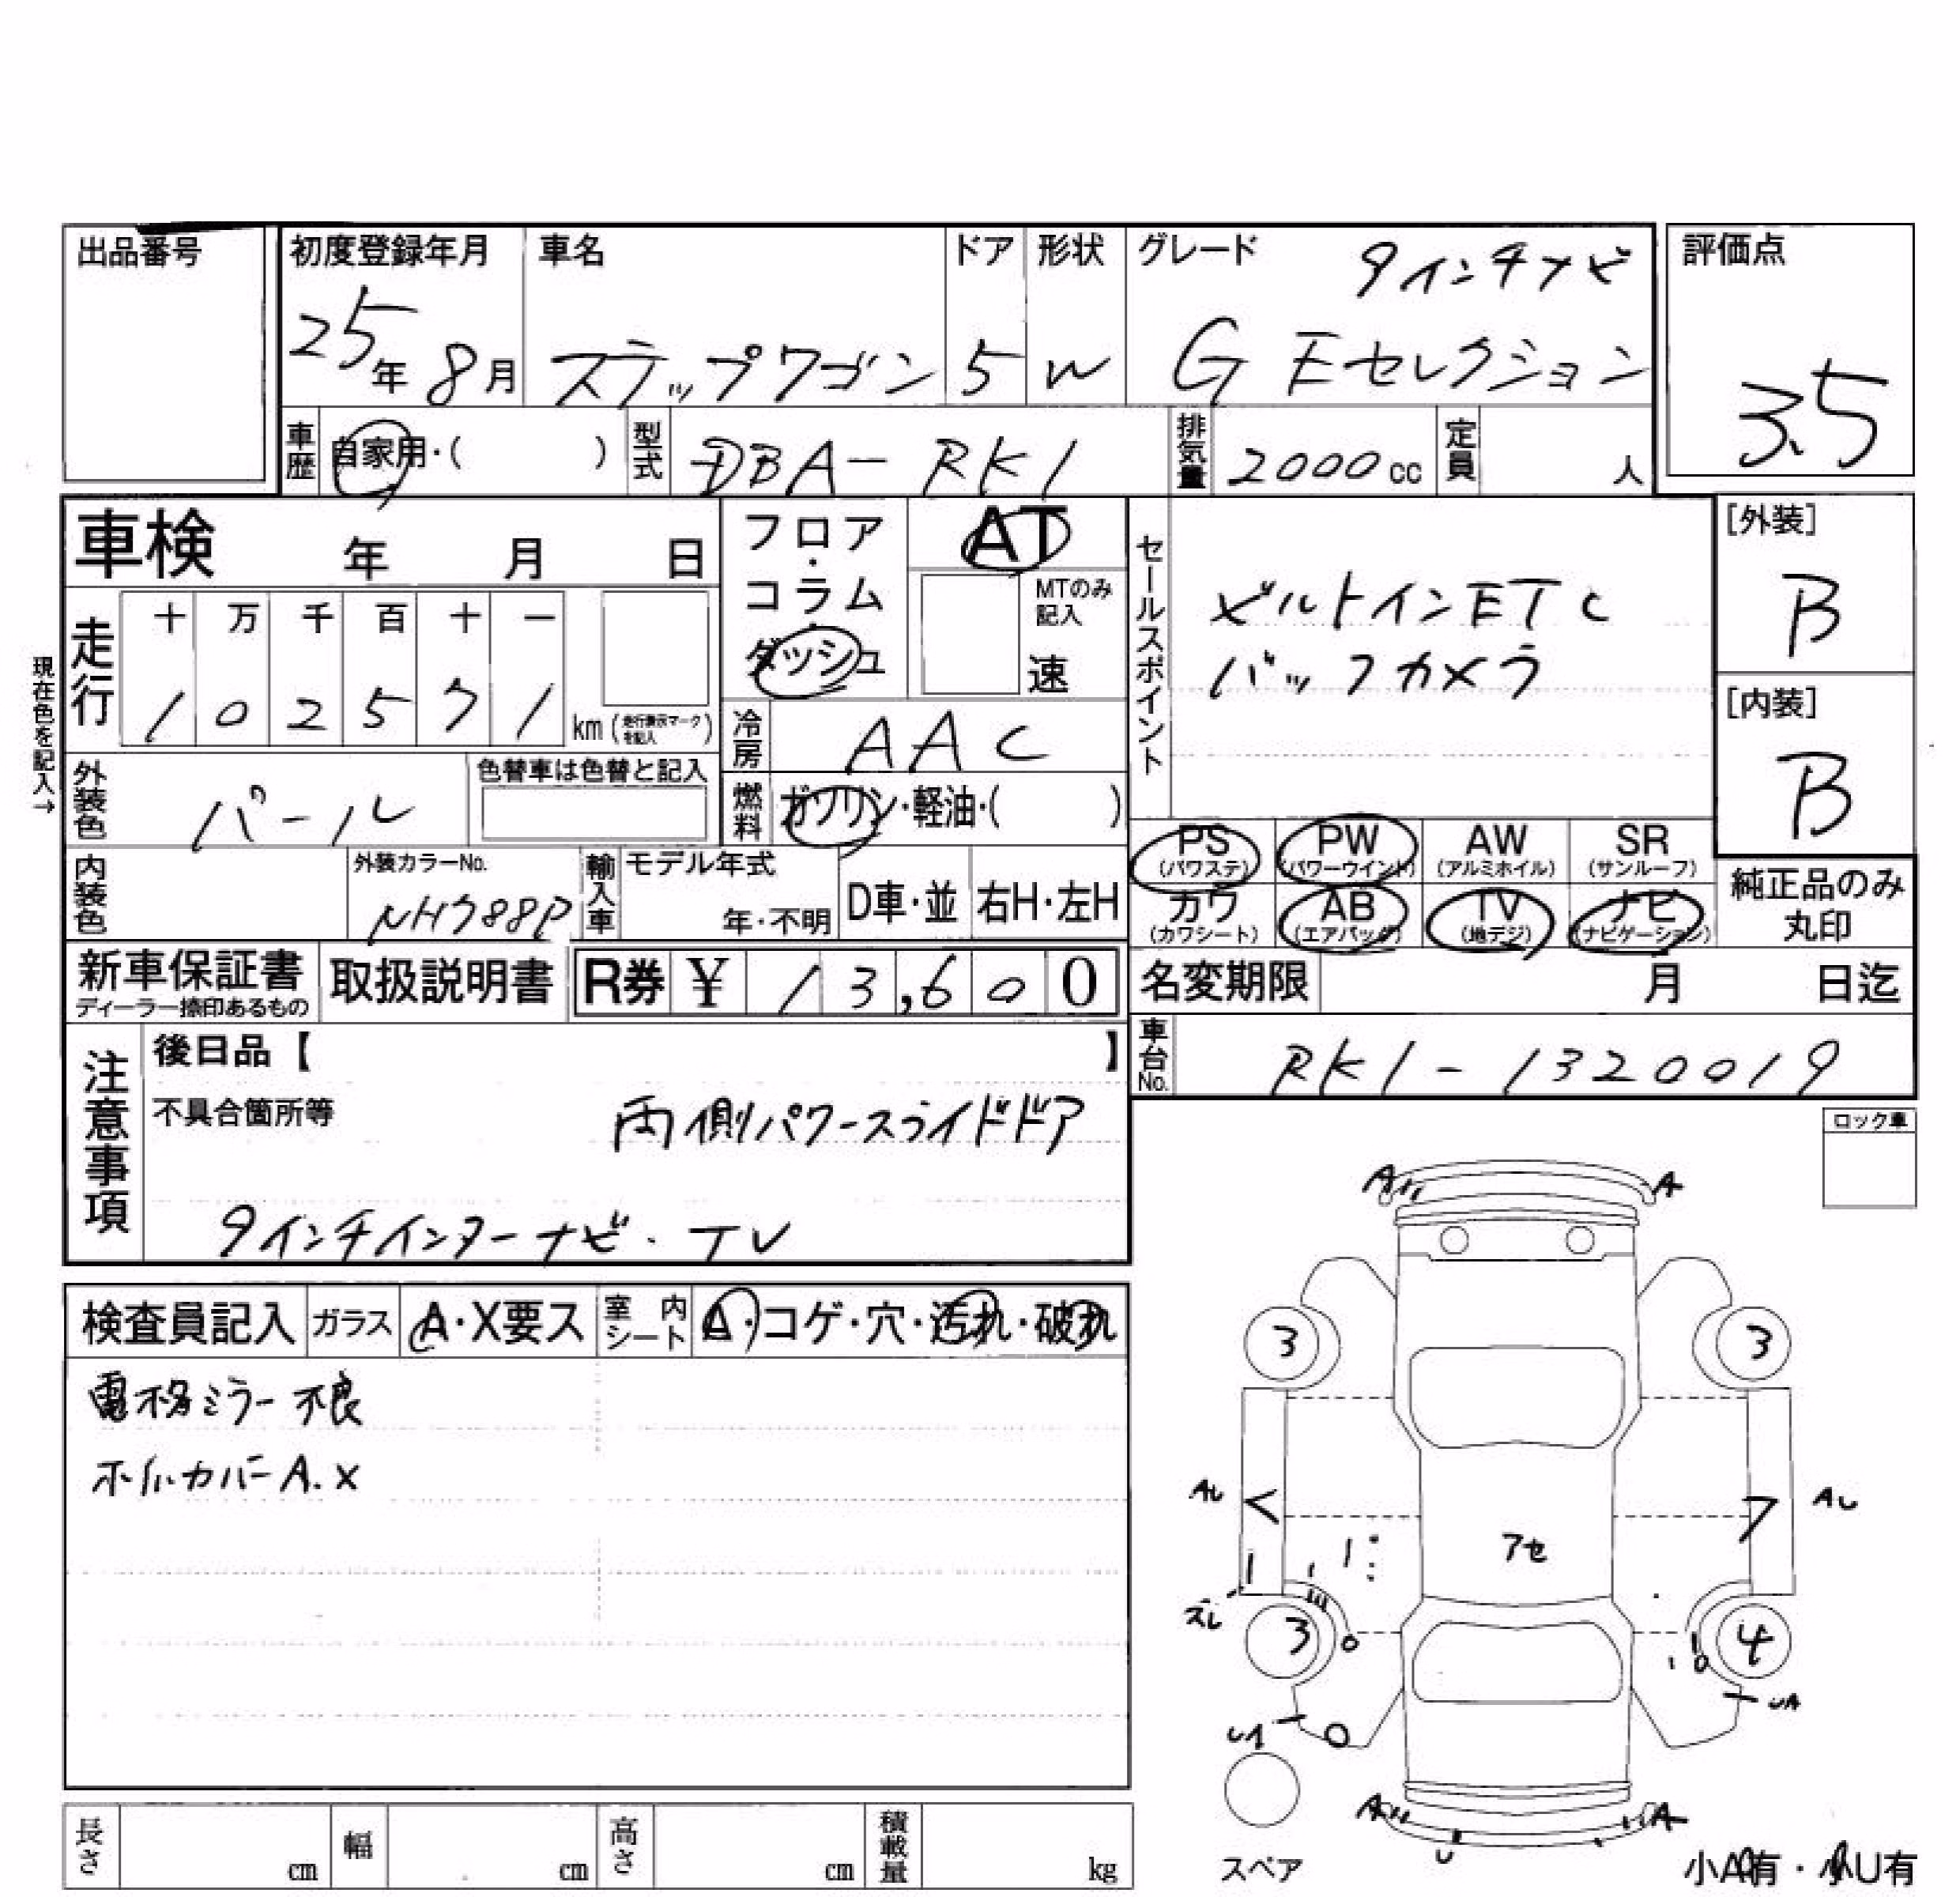 出品番号
初度登録年月 車名 ドア 形状 グレード 9インチナビ 評価点
25年 8月 ステップワゴン 5 W G Eセレクション 3.5
車歴 自家用・( ) 型式 DBA-RK1 排気量 2000cc 定員 人
車検 年 月 日 フロア・コラム・ダッシュ AT
MTのみ記入
速
セールスポイント
ビルトインETC
バックカメラ
[外装]
B
[内装]
B
現在色を記入→
走行 十 万 千 百 十 一
1 0 2 5 7 1 km (走行表示マークを記入)
冷房 AAC
外装色 パール 色替車は色替と記入
燃料 ガソリン・軽油・( )
PS (パワステ) PW (パワーウインド) AW (アルミホイル) SR (サンルーフ)
カワ (カワシート) AB (エアバッグ) TV (地デジ) ナビ (ナビゲーション)
純正品のみ丸印
内装色 外装カラーNo. NH788P 輸入車 モデル年式 年・不明 D車・並 右H・左H
新車保証書 ディーラー捺印あるもの 取扱説明書 R券 ¥ 13,600
名変期限 月 日迄
車台No. RK1-1320019
注意事項
後日品【 】
不具合箇所等 両側パワースライドドア
9インチインターナビ・TV
ロック車
検査員記入 ガラス A・X要ス 室内シート A・コゲ・穴・汚れ・破れ
電格ミラー不良
ホイルカバーA.X
A A
3 3
AL AL
アセ
ズレ
3 4
UA
UA
A A
U
スペア
長さ cm 幅 cm 高さ cm 積載量 kg
小A有・小U有